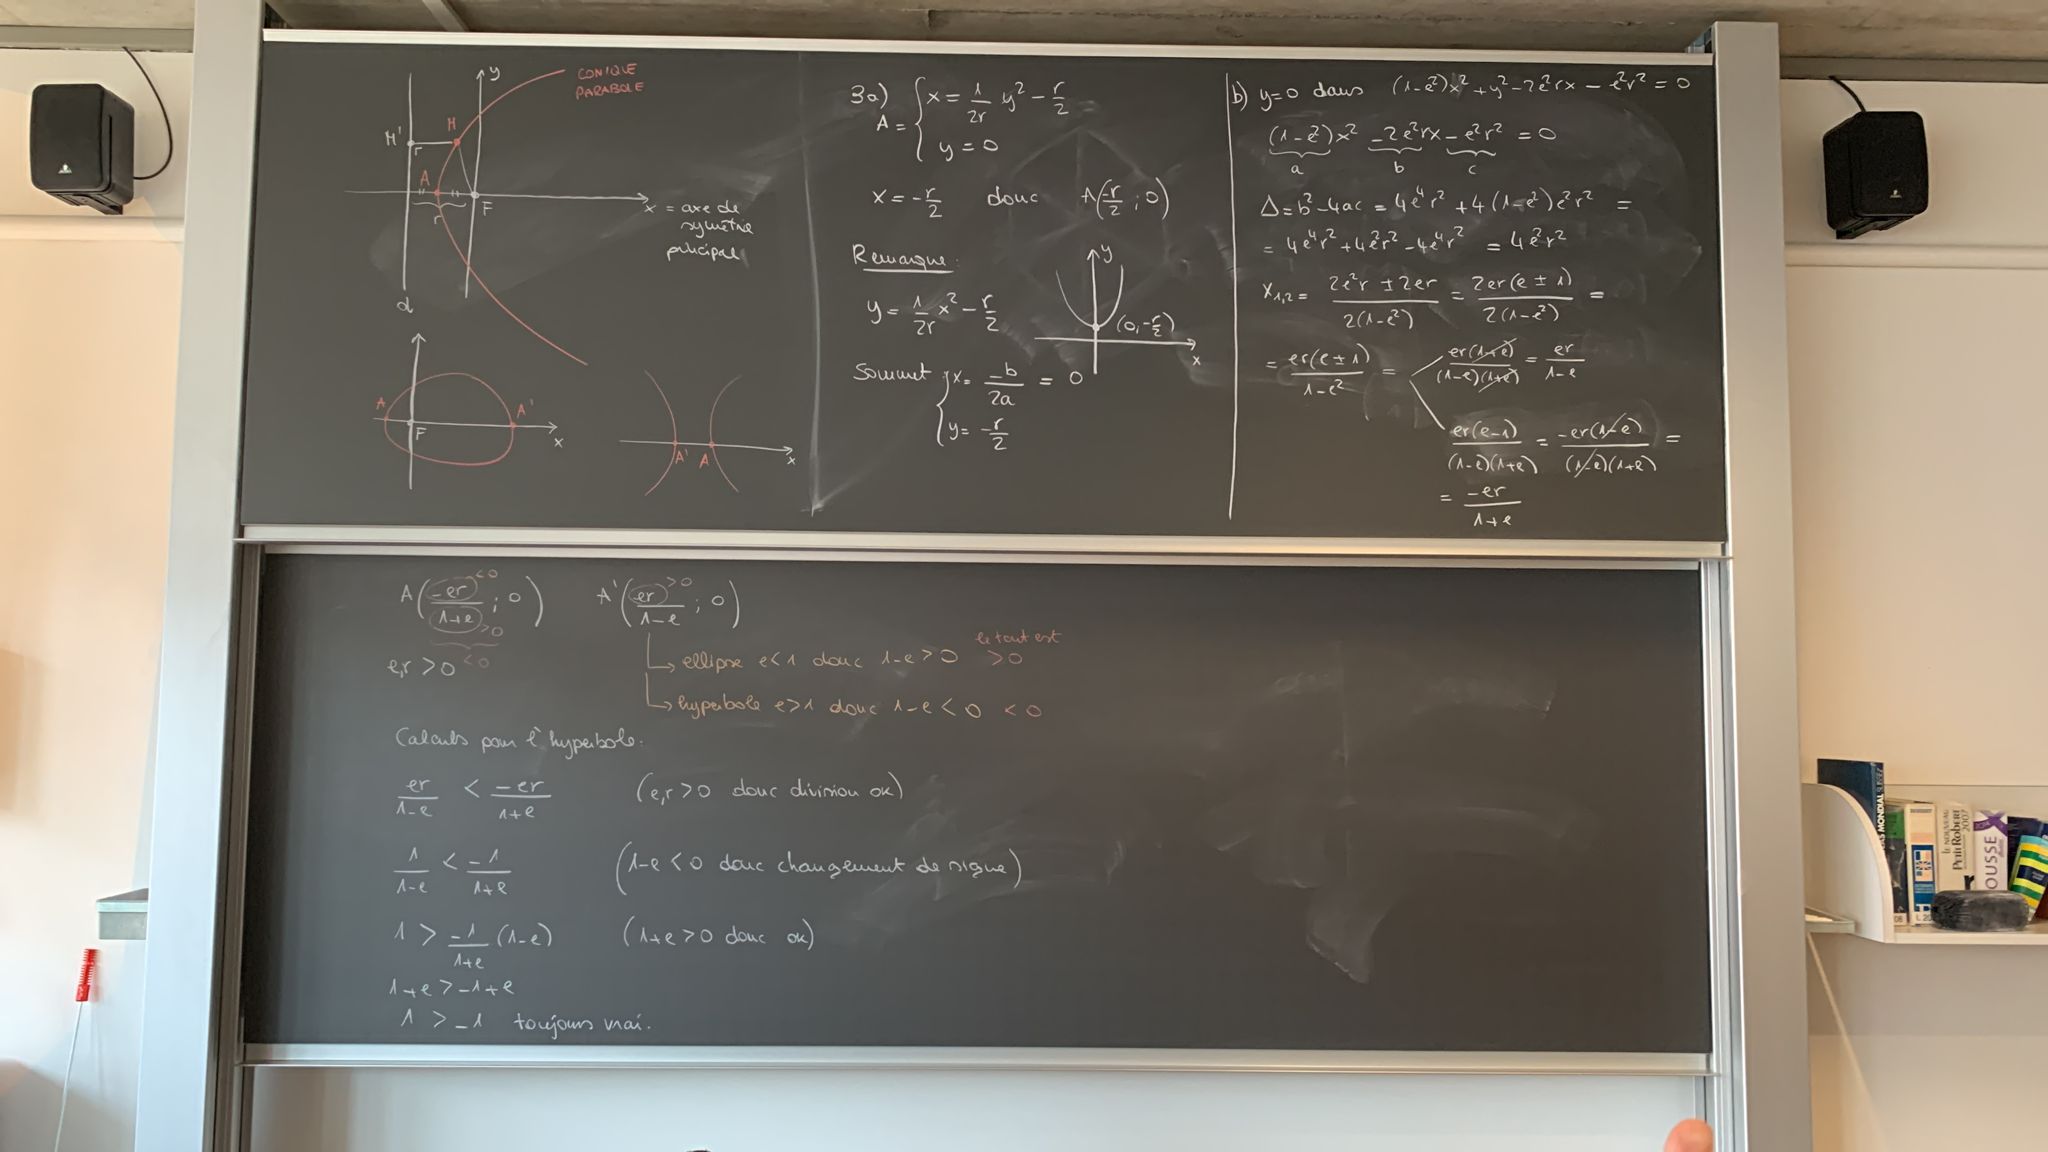 CONIQUE
PARABOLE
y
M'
M
r
A
F
r
x = axe de
symétrie
principal
d
A
F
A'
x
A'
A
x
3a) A = { x = 1/2r y² - r/2
y = 0
x = -r/2 donc A(-r/2 ; 0)
Remarque:
y = 1/2r x² - r/2
y
(0, -r/2)
x
Sommet { x = -b/2a = 0
y = -r/2
b) y=0 dans (1-e²)x² + y² - 2e²rx - e²r² = 0
(1-e²)x² -2e²rx -e²r² = 0
a b c
Δ = b² - 4ac = 4e⁴r² + 4(1-e²)e²r² =
= 4e⁴r² + 4e²r² - 4e⁴r² = 4e²r²
x₁,₂ = 2e²r ± 2er / 2(1-e²) = 2er(e ± 1) / 2(1-e²) =
= er(e ± 1) / 1-e² = er(1+e) / (1-e)(1+e) = er / 1-e
er(e-1) / (1-e)(1+e) = -er(1-e) / (1-e)(1+e) =
= -er / 1+e
A( -er / 1+e ; 0 ) <0 >0 <0
A'( er / 1-e ; 0 ) >0
e,r > 0
le tout est
ellipse e<1 donc 1-e > 0 >0
hyperbole e>1 donc 1-e < 0 <0
Calculs pour l'hyperbole:
er / 1-e < -er / 1+e (e,r > 0 donc division ok)
1 / 1-e < -1 / 1+e (1-e < 0 donc changement de signe)
1 > -1 / 1+e (1-e) (1+e > 0 donc ok)
1+e > -1+e
1 > -1 toujours vrai.
MONDIAL
LE NOUVEAU
Petit Robert
2007